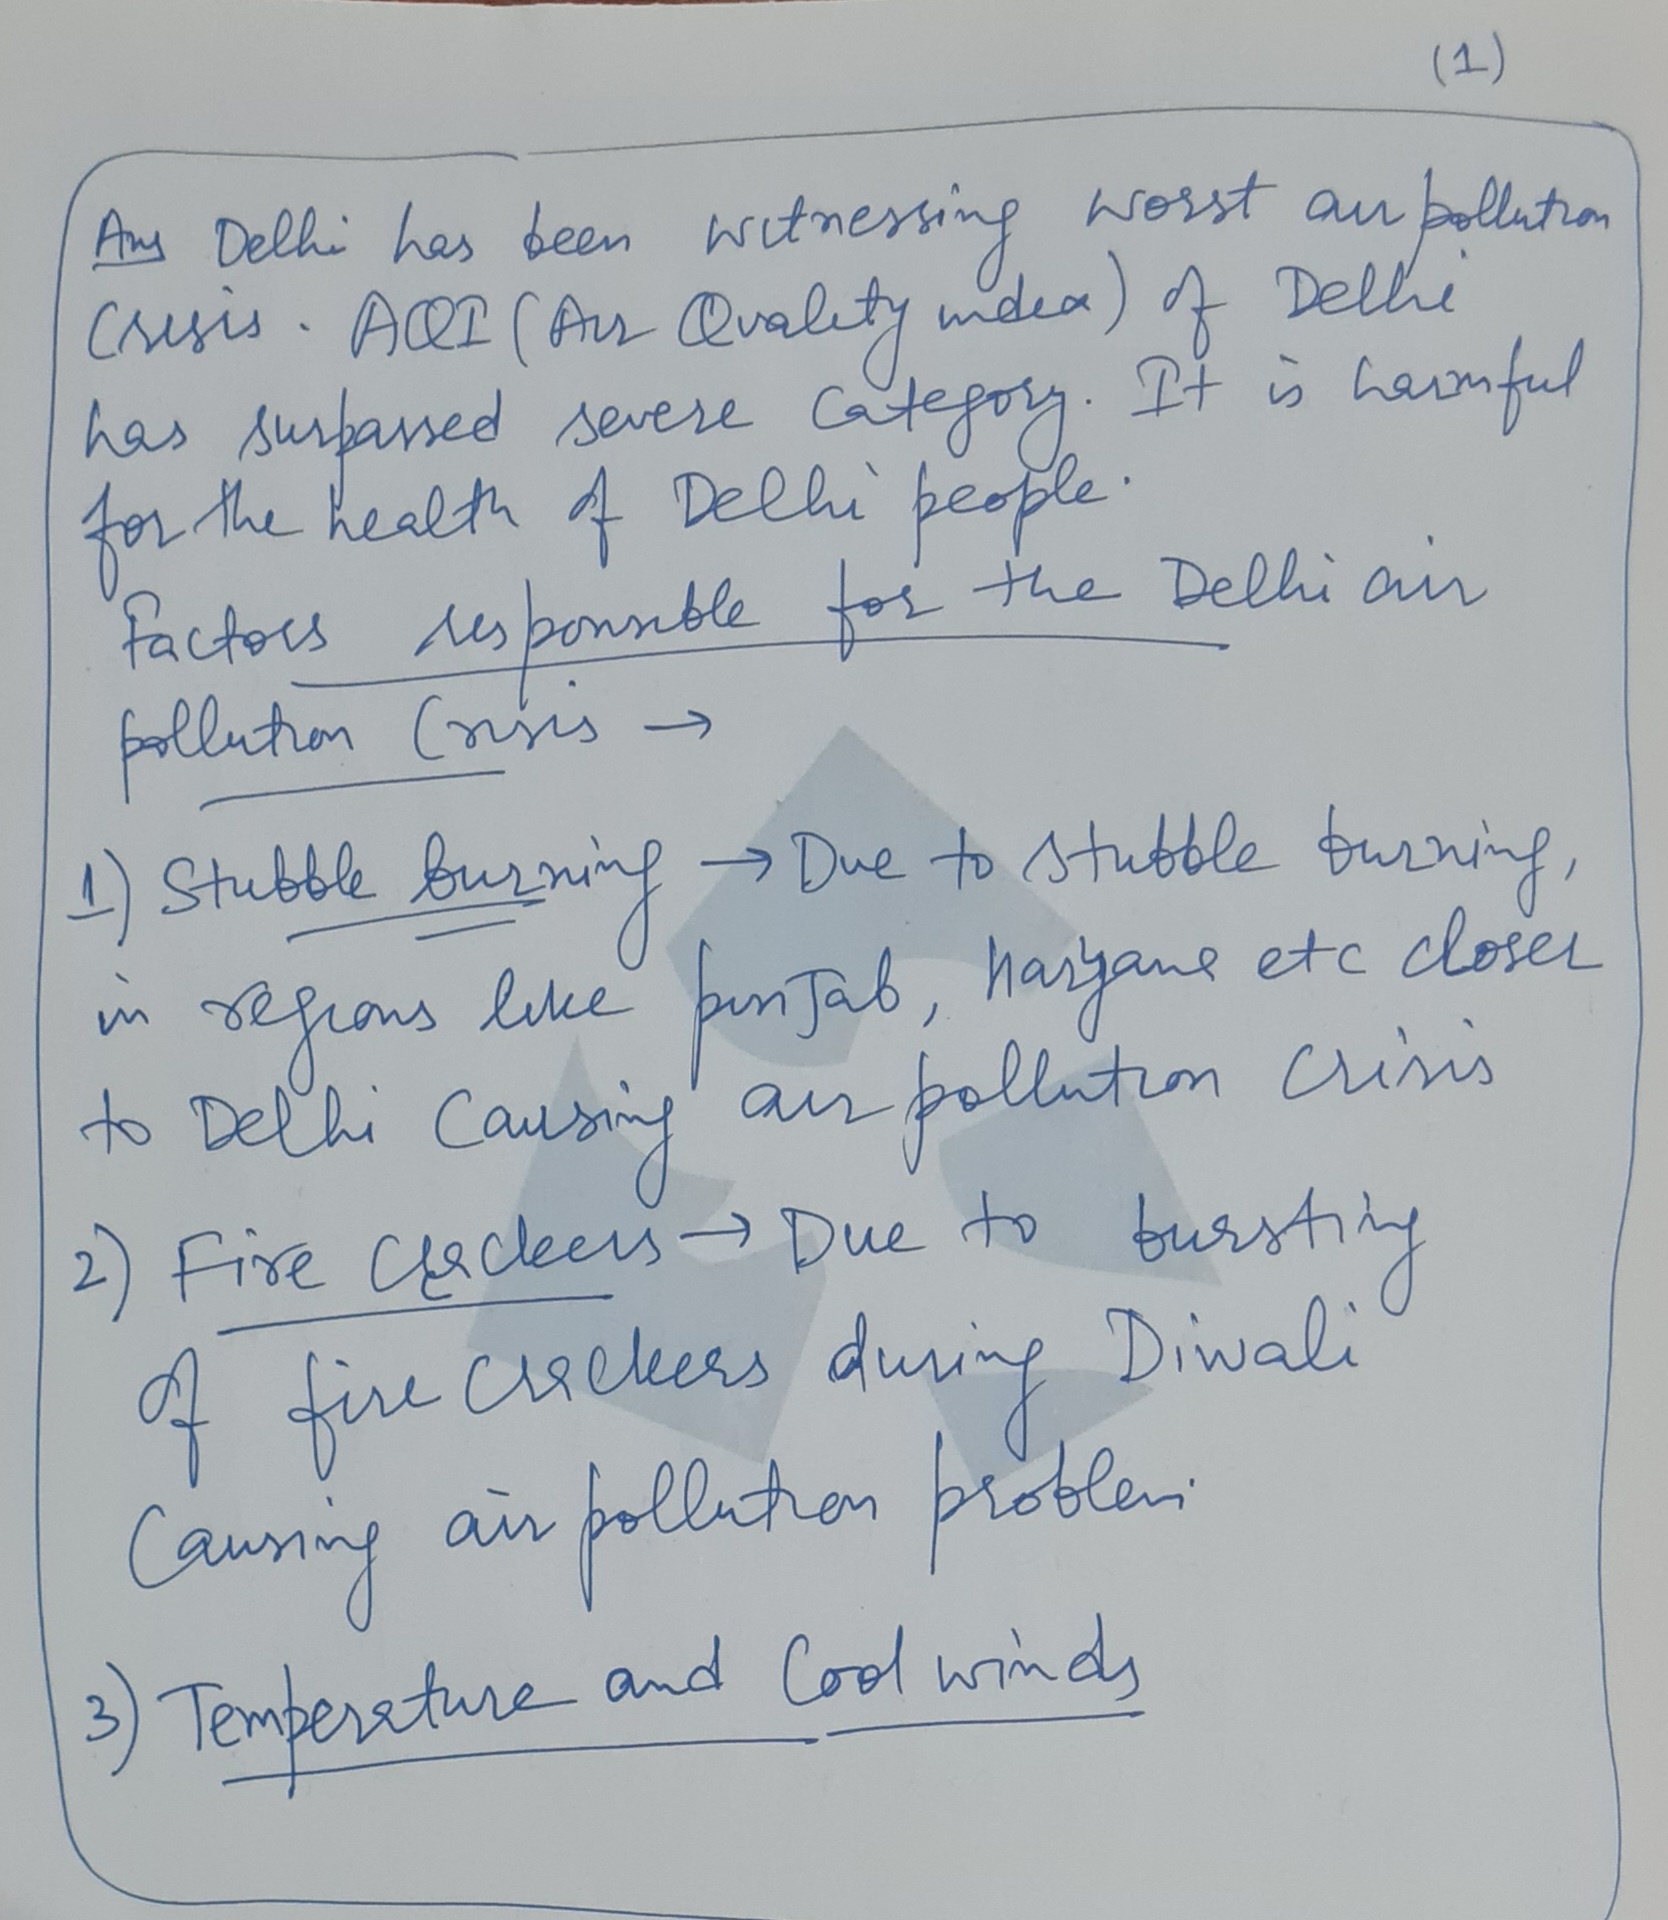 (1)
Ans Delhi has been witnessing worst air pollution
Crisis. AQI (Air Quality index) of Delhi
has surpassed severe Category. It is harmful
for the health of Delhi people.
Factors responsible for the Delhi air
pollution Crisis →
1) Stubble burning → Due to stubble burning,
in regions like punjab, haryana etc closer
to Delhi Causing air pollution crisis
2) Fire Crackers → Due to bursting
of fire crackers during Diwali
Causing air pollution problem.
3) Temperature and Cool winds